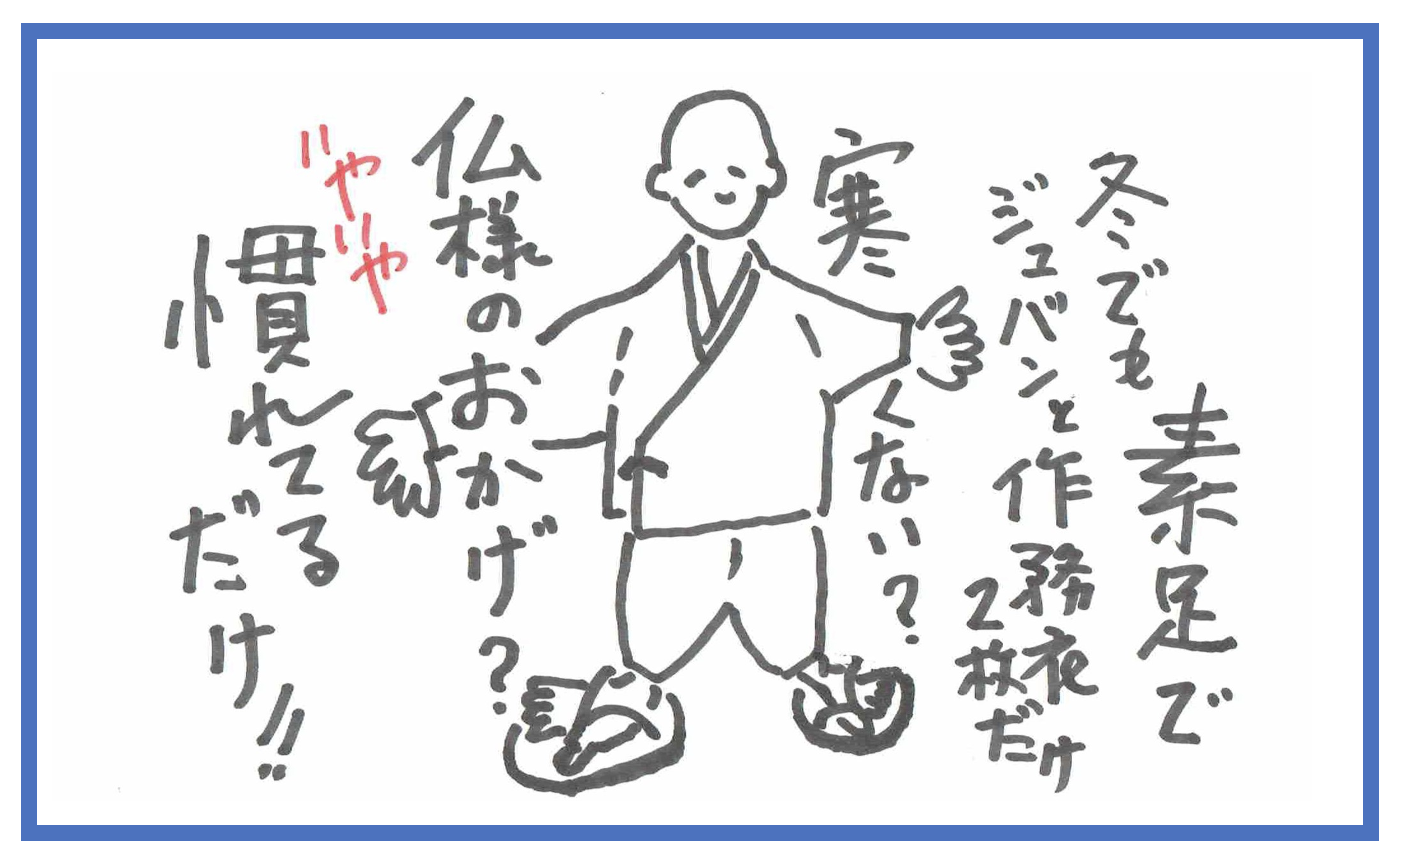 冬でも
素足で
ジュバンと作務衣
2枚だけ
寒くない?
仏様のおかげ?
いやいや
慣れてる
だけ!!